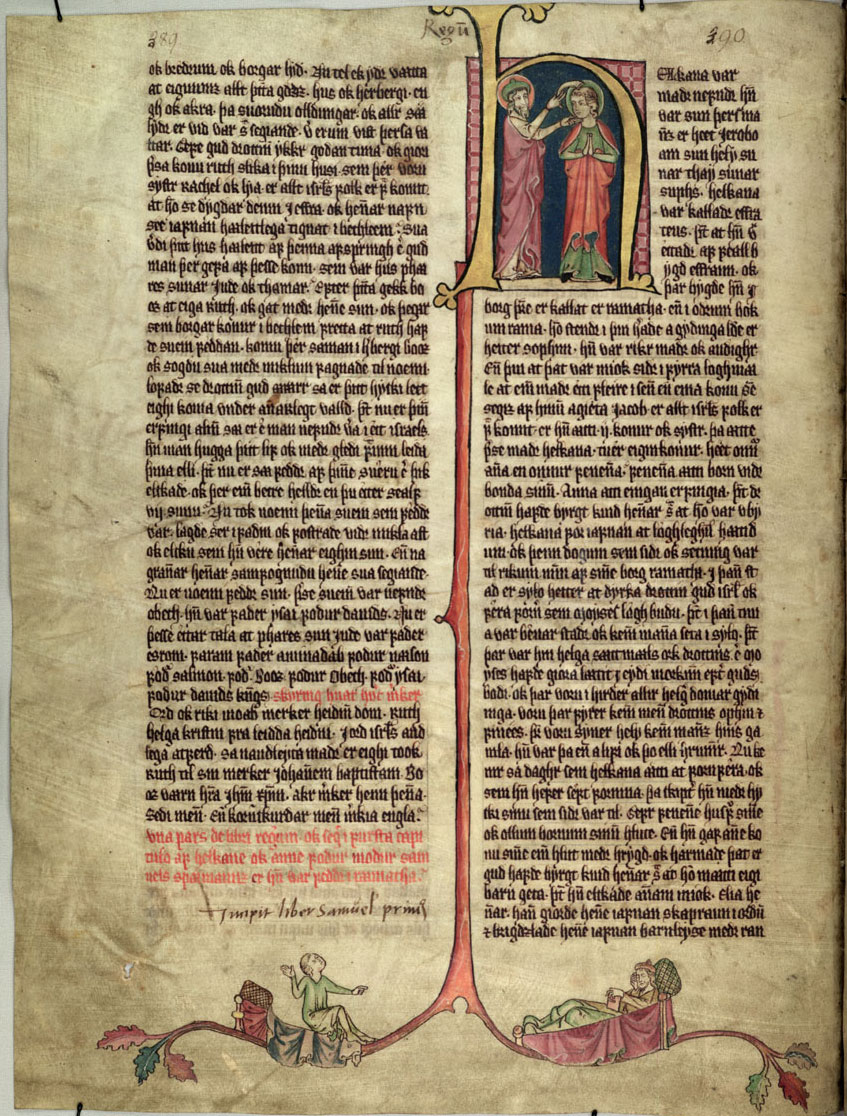 389
Regū
390
ok bredrum ok borgar lyd. Nu tel ek ydr vatta
at eiginum allt þetta godz. hus ok herbergi. en
gh ok akra. þa suorudu olldungar. ok allr sa
lydr er vid var segiande. Verum vitt þersa va
ttar. Gere gud drottin ykkr godan tima. ok giori
þsa konu ruth slika i þinu husi. sem þer voru
systr Rachel ok lya. er allt israels folk er fra komit.
at ho se dygdar demi i effrata. ok hennar nafn
see iafnan haleitlega tignat i bethleem. Sua
verdi þitt hus haleitt af þenna afspringh er gud
man þer gefa af þesse konu. sem var hus phar
res sunar Jude ok thamar. Epter þetta gekk bo
oz at eiga Ruth. ok gat medr henne sun. ok þegar
sem borgar konur i bethleem fretta at ruth haf
de suein feddan. komu þer saman i herbergi booz
ok sogdu sua medr miklum fagnade til noemi.
lofadr se drottinn gud
eighi koma vnder annarlegt valld.
erfingi
hn man hugga þitt lif ok medr gledi
þina elli.
elskade. ok þer em betre helldr en þu etter sealf
vij sunu. Nu tok noemi þena suein sem fedde
var. lagde ser i fadm ok fostrade vidr mikla ast
ok elsku sem hn vere hennar eighin sun. En na
grannar hennar samfognudu henne sua segiande.
Nu er noemi fedde sun. þesse suein var nefndr
obeth. hn var fader ysai fodur dauids. Nu er
þesse ettar tala at phares sun Jude var fader
esrom. faram fader aminadab fodur naason
fod salmon. fod Booz. fodur Obeth. fod ysai
fodur dauids kungs. skyring huat huert merker
Ord ok riki moab merker heidin dom. Ruth
helga kristni fra leidda heidni. Jord israels and
lega atferd. sa naudleyta madr er eighi took
Ruth til sin merker Johannem baptistam. Bo
oz varn herra ihm xpm. akr merker henn þena
Sedi men. En kornskurdar menn merkia engla.
vna pars de libri regum. ok segir i fursta capi
tulo af helkane ok anne fodur modur sam
uels spamanz er hn var feddr i ramatha.
Incipit liber Samuel primus
Elkana var
madr nefndr hn
var sun þers ma
nz er heet Jerobo
am sun heliy su
nar thaij sunar
suphs. helkana
var kalladr effra
teus. þt at hn v
ettadr af fiall b
ygd effraim. ok
þar bygde hn i
borg þre er kallat er ramatha. en i odrum bok
um rama. ho stendr i þui hade a gydinga lde er
heiter sophim. hn var rikr madr ok audighr
En þui at þat var miok sidr i fyrra loghma
le at ein madr etti fleire i senn en eina konu
segir af hinum agieta Jacob. er allt israels folk er
fra komit. er hn atti .ij. konur ok systr. þa atte
þesse madr helkana. tuer eiginkonur. heet onnur
anna en onnur fenena. fenena atti born vidr
bonda sinn. Anna atti eingan erfingia. þt dr
ottinn hafde byrgt kuid hennar sua at ho var vbyr
ia. helkana for iafnan at loghleghum hatid
um. ok þeim dogum sem sidr ok setning var
til rikum af sinne borg ramatha. i þann st
ad er sylo heiter at dyrka drottin gud israels ok
fera forn sem moyses logh budu. þt i þann tim
a var bennar stadr ok kem manna seta i sylo. þt
þar var hin helga sattmals ork drottins er mo
yses hafde giora latit i eydi merkinni epter guds
bodi. ok þar voru i hirder allir helger domar gydi
niga. voru þar fyrer kenimenn drottins ophni z
finees. þr voru syner hely kenimanz hins ga
mla. hn var þa enn a lifi ok þo elli hrumr. Nu ke
mr sa daghr sem helkana atti at fornfera. ok
sem hn hefer sept fornina. þa skipter hn medr hy
ski sinu sem sidr var til. Gefr fenene husfru sinne
ok ollum bornum sinum hlute. En hn gaf anne ko
nu sinne ein hlut medr hrygd. ok harmade þat er
gud hafde byrgt kuid hennar sua at ho matti eigi
barn geta. þt hn elskade annam miok. Elia he
nar. han giorde henne iafnan skapraun i ordu
z brigdzlade henne iafnan barnleyse medr ran